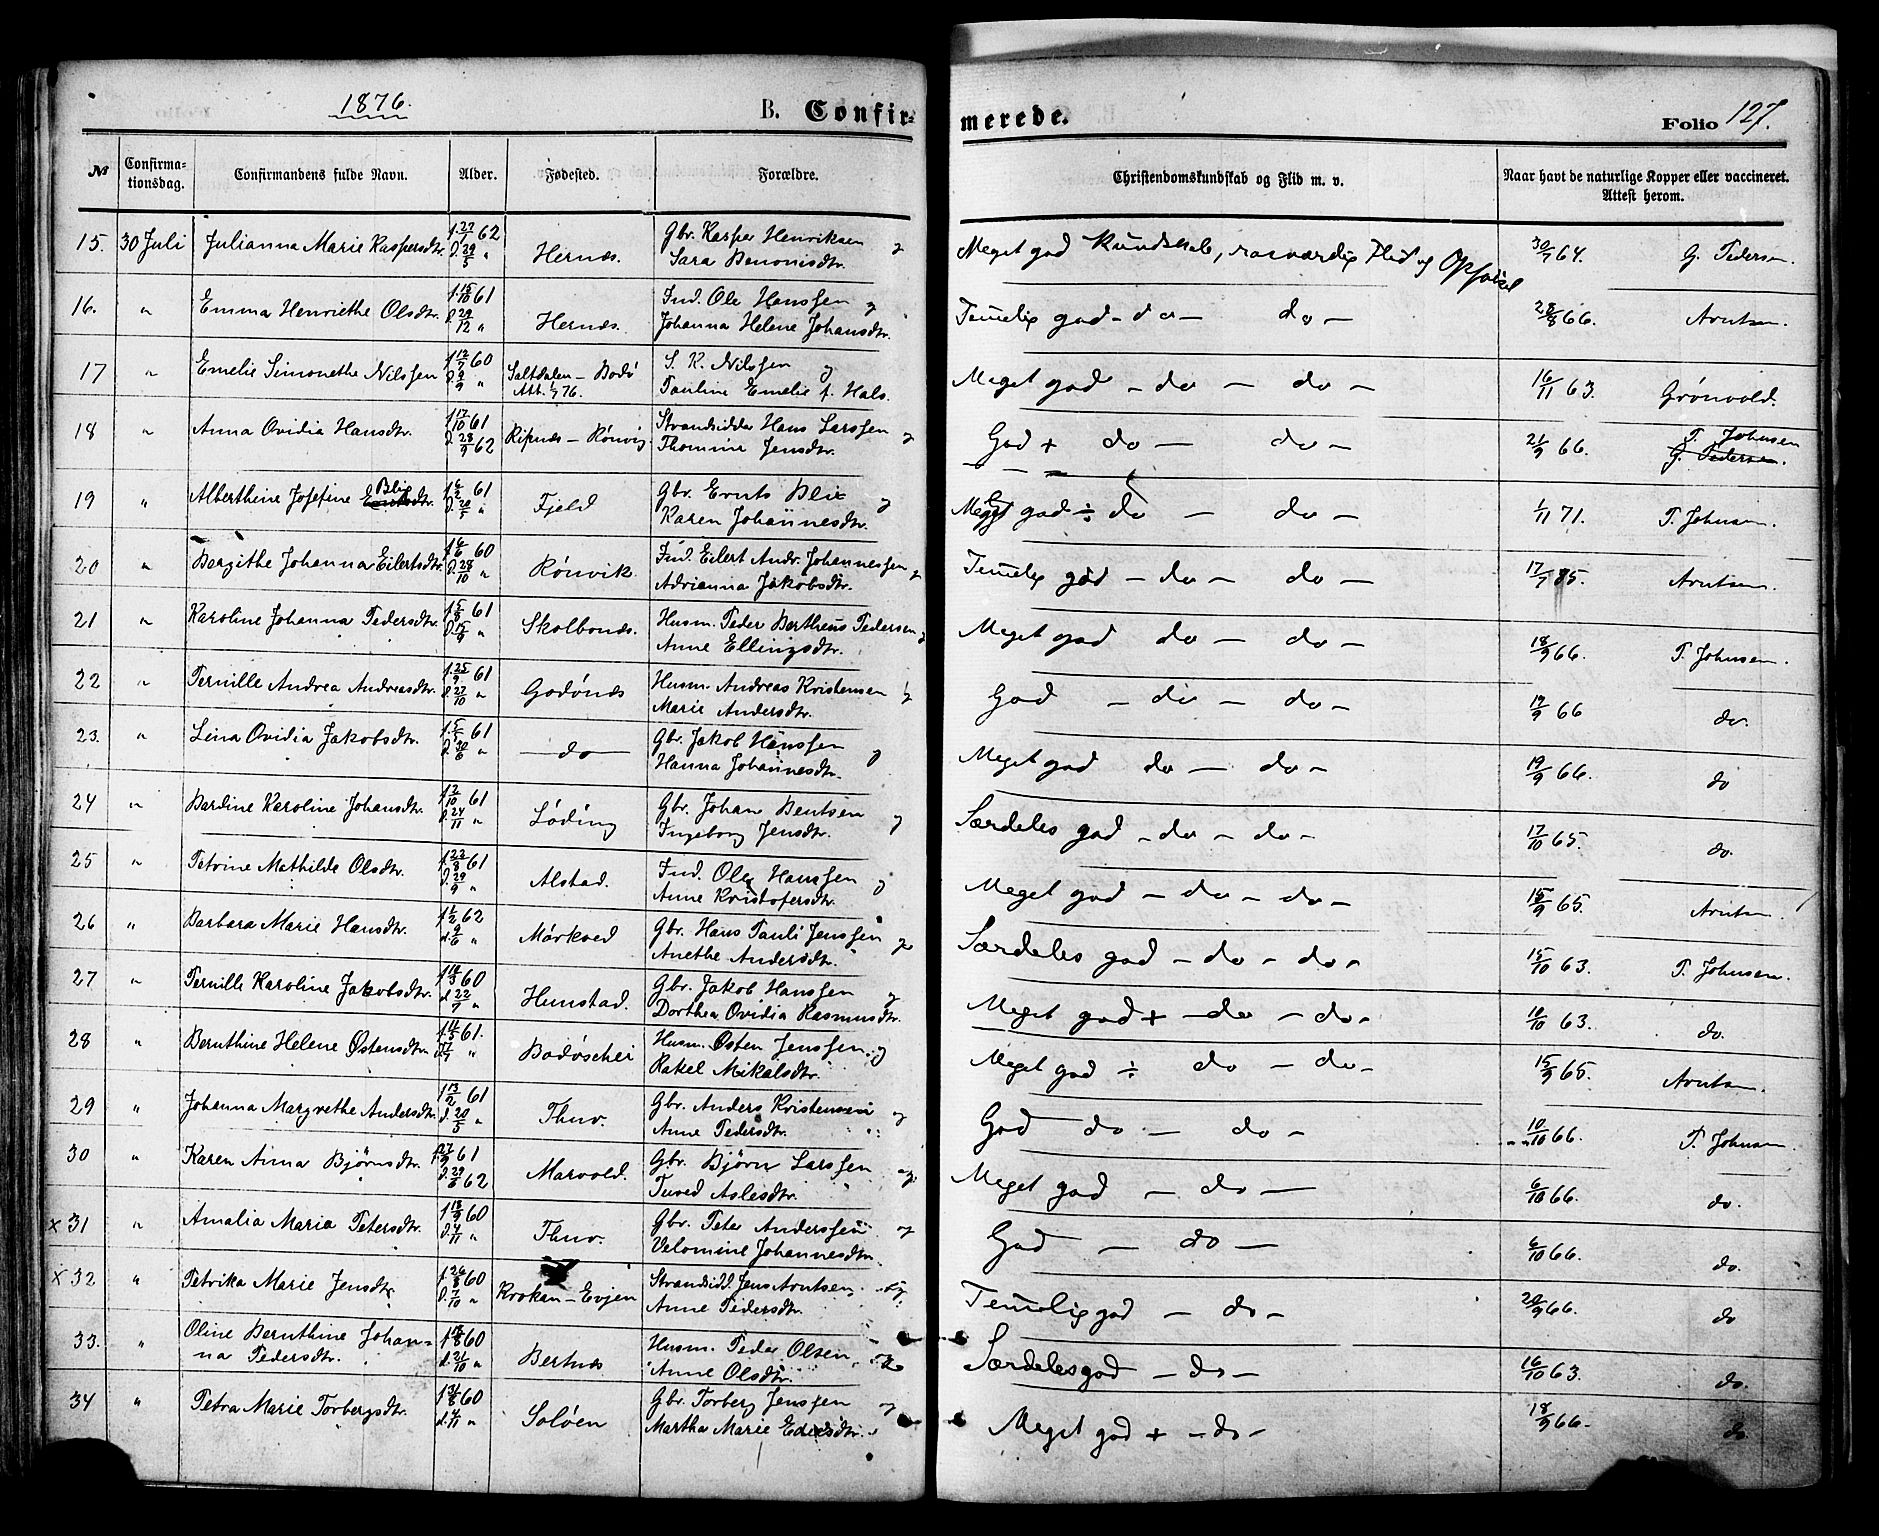 1876.
B. Confir-
merede.
Folio 127.
№ Confirma-tionsdag. Confirmandens fulde Navn. Alder. Fødested. Forældre. Christendomskundskab og Flid m. v. Naar havt de naturlige Kopper eller vaccineret. Attest herom.
15. 30 Juli Julianna Marie Kaspersdtr. f. 27/1 62 D. 29/5 " Hernæs. Gbr. Kasper Henriksen og Sara Benonisdtr. Meget god Kundskab, rosværdig Flid og Opførsel 30/7 64. G. Pedersen.
16. " Emma Henriethe Olsdtr. f. 15/10 61 D. 29/12 " Hernæs. Ind. Ole Hanssen og Johanna Helene Johansdtr. Temelig god - do - do - 28/8 66. Arntsen.
17 " Emelie Simonethe Nilssen f. 12/7 60 D. 9/9 " Saltdalen - Bodø Att. 1/7 76. S. K. Nilssen og Pauline Emelie f. Hals. Meget god - do - do - 16/11 63. Grønvold.
18 " Anna Ovidia Hansdtr. f. 17/10 61 D. 28/9 62 Ripnæs - Rønvig. Strandsidder Hans Larssen og Thomine Jensdtr. God + do - do - 21/9 66. T. Johnsen G. Pedersen.
19 " Alberthine Josefine Blix Erntsdtr. f. 6/2 61 D. 20/5 " Fjeld Gbr. Ernts Blix og Karen Johannesdtr. Meget god ÷ do - do - 1/11 71. T. Johnsen.
20 " Bergithe Johanna Eilertsdtr. f. 6/6 60 D. 28/10 " Rønvik. Ind. Eilert Andr. Johannessen og Adrianna Jakobsdtr. Temelig god - do - do - 17/7 85. Arntsen.
21 " Karoline Johanna Pedersdtr. f. 5/8 61 D. 15/9 " Skolbones. Husm. Peder Bertheus Pedersen og Anne Ellingsdtr. Meget god do - do - 18/9 66. T. Johnsen.
22 " Pernille Andrea Andreasdtr. f. 25/9 61 D. 27/10 " Godønes Husm. Andreas Kristensen og Marie Andersdtr. God - do - do - 19/9 66 do.
23. " Lina Ovidia Jakobsdtr. f. 5/5 61 D. 30/6 " - do - Gbr. Jakob Hanssen og Hanna Johannesdtr. Meget god do - do - 19/9 66. do
24 " Bardine Karoline Johansdtr. f. 2/10 61 D. 24/11 " Løding Gbr. Johan Bentsen og Ingeborg Jensdtr. Særdeles god - do - do - 17/10 65. do.
25 " Petrine Mathilde Olsdtr. f. 22/8 61 D. 29/9 " Alstad. Ind. Ole Hanssen og Anne Kristofersdtr. Meget god - do - do - 15/9 65. Arntsen.
26 " Barbara Marie Hansdtr. f. 1/2 62 d. 9/6 " Mørkved Gbr. Hans Pauli Jenssen og Anethe Andersdtr. Særdeles god - do - do - 15/10 63. T. Johnsen.
27 " Pernille Karoline Jakobsdtr. f. 18/3 60 d. 22/7 " Hunstad. Gbr. Jakob Hanssen og Dorthea Ovidia Rasmusdtr. Meget god + - do - do - 10/10 63. do.
28 " Bernthine Helene Østensdtr. f. 11/5 61. d. 7/7 " Bodøschei Husm. Østen Jenssen. og Rakel Mikalsdtr. Meget god ÷ do - do - 15/9 65. Arntsen.
29 " Johanna Margrethe Andersdtr. f. 13/2 61 d. 20/5 " Thuv. Gbr. Anders Kristensen og Anne Pedersdtr. God do - do - 10/10 66. T. Johnsen
30 " Karen Anna Bjørnsdtr. f. 27/9 61 D. 29/6 62 Marvold. Gbr. Bjørn Larssen og Tured Aslesdtr. Meget god - do - 6/10 66. do.
x 31 " Amalia Maria Petersdtr. f. 18/9 60 D. 4/11 " Thuv. Gbr. Peter Anderssen og Velomine Johannesdtr. God - do - 6/10 66. do.
x 32 " Petrika Marie Jensdtr. f. 26/8 60 D. 7/10 " Krokan - Evjen Strandsidd. Jens Arntsen. og Anne Pedersdtr. Temelig god - do - 20/9 66. do
33. " Oline Bernthine Johanna Pedersdtr. f. 18/8 60 d. 21/10 " Bertnes Husm. Peder Olsen og Anne Olsdtr. Særdeles god - do - 16/10 63. do.
34 " Petra Marie Torbergsdtr. f. 31/8 60 d. 4/11 " Soløen Gbr. Torberg Jenssen og Martha Marie Edisdtr. Meget god + - do - 18/9 66. do